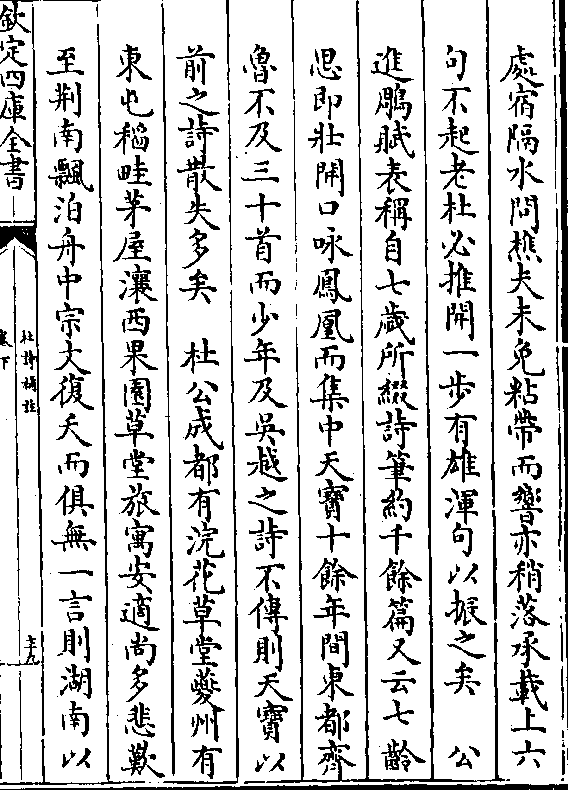 處宿隔水問樵夫未免粘帶而響亦稍落承載上六
句不起老杜必推開一步有雄渾句以振之矣　公
進鵰賦表稱自七歲所綴詩筆約千餘篇又云七齡
思即壯開口咏鳳凰而集中天寳十餘年間東都齊
魯不及三十首而少年及吳越之詩不傳則天寳以
前之詩散失多矣　杜公成都有浣花草堂夔州有
東屯稻畦茅屋瀼西果園草堂旅寓安適尚多悲歎
至荆南飄泊舟中宗文復夭而俱無一言則湖南以
欽定四庫全書
杜詩攟
卷下